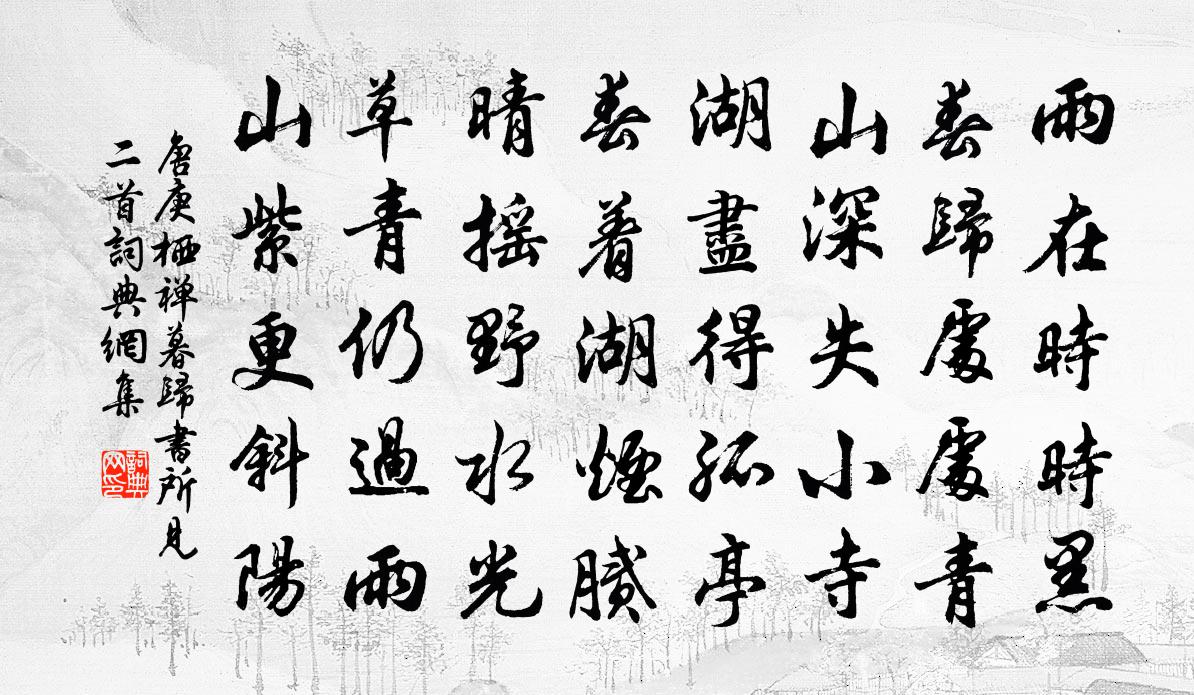 雨在時時黑
春歸處處青
山深失小寺
湖盡得孤亭
春着湖煙膩
晴摇野水光
草青仍過雨
山紫更斜陽
唐庚栖禅暮歸書所見
二首詞典網集
詞典网印